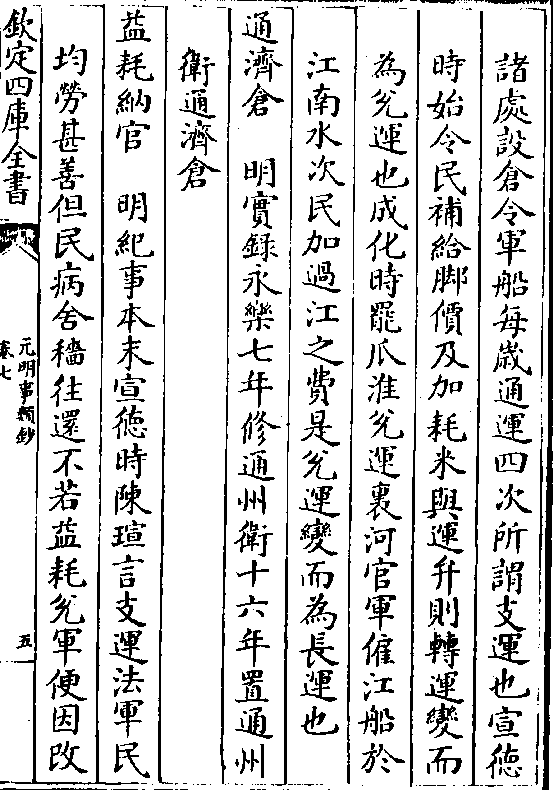 諸處設倉令軍船每歲通運四次所謂支運也宣德
時始令民補給脚價及加耗米與運弁則轉運變而
為兊運也成化時罷瓜淮兊運裏河官軍僱江船於
江南水次民加過江之費是兊運變而為長運也
通濟倉 明實錄永樂七年修通州衛十六年置通州
衛通濟倉
益耗納官 明紀事本末宣德時陳瑄言支運法軍民
均勞甚善但民病舍穡往還不若益耗兊軍便因改
欽定四庫全書
元明事類鈔
卷七
五